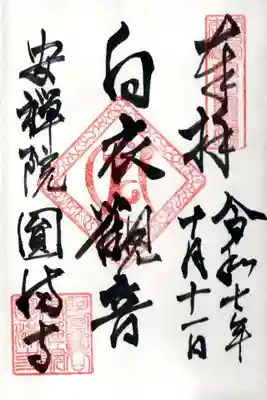 奉拝
令和七年
十月十一日
白衣観音
安禅院圓満寺